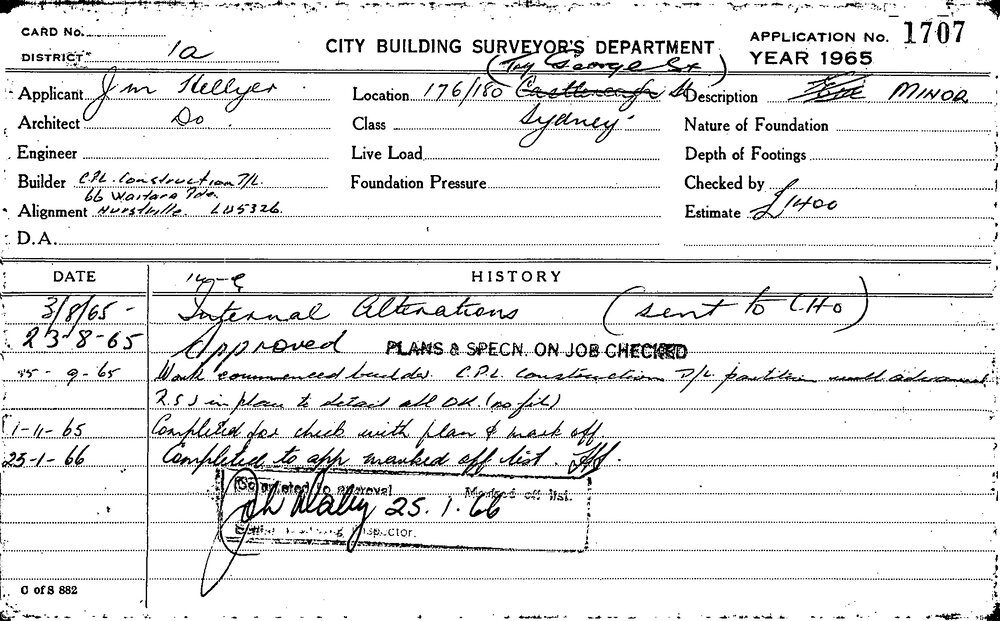 CARD No.
DISTRICT 1a
CITY BUILDING SURVEYOR'S DEPARTMENT
APPLICATION No. 1707
YEAR 1965
(Try George St)
Applicant Jim Hellyer
Location 176/180 Castlereagh St
Description MINOR
Architect Do.
Class Sydney.
Nature of Foundation
Engineer
Live Load
Depth of Footings
Builder C.P.L. Construction P/L.
66 Waitara Pde.
Foundation Pressure
Checked by
Alignment Hurstville. LU5326.
Estimate £1400
D.A.
DATE
HISTORY
3/8/65 - Internal Alterations (sent to CHO)
23-8-65 Approved PLANS & SPECN. ON JOB CHECKED
-9-65 Work commenced builder C.P.L. Construction P/L partition well advanced
R.S.J in place to detail all OK. (no fil)
1-11-65 Completed for check with plan & mark off
25-1-66 Completed to app marked off list.
Completed to approval Marked off list.
25.1.66
Inspector.
C of S 882